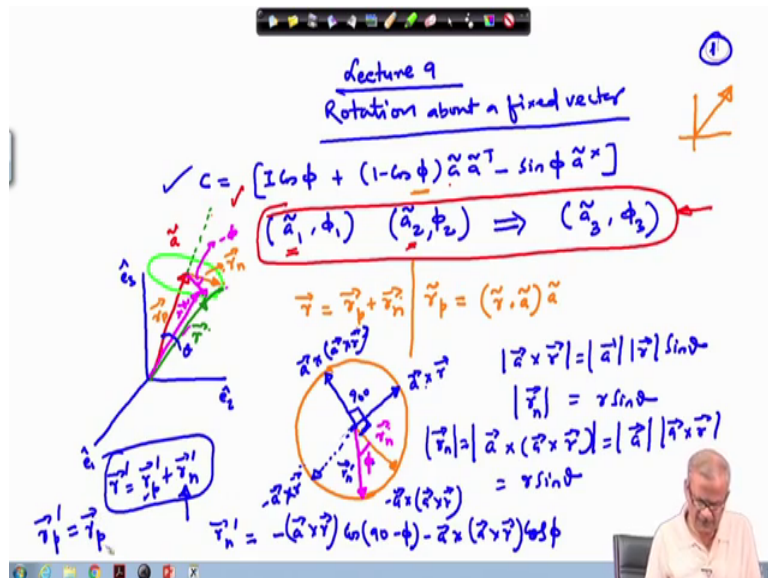 1
Lecture 9
Rotation about a fixed vector
✓ C = [I Cos ϕ + (1-Cos ϕ) ã ã^T - Sin ϕ ã^×]
(ã₁, ϕ₁) (ã₂, ϕ₂) ⟹ (ã₃, ϕ₃)
ã
-ϕ
r⃗n
ê₃
r⃗p
r⃗'
r⃗
θ
ê₂
ê₁
r⃗ = r⃗p + r⃗n
r̃p = (r̃ . ã) ã
a⃗×(a⃗×r⃗)
a⃗×r⃗
90°
r⃗n
r⃗n'
ϕ
-a⃗×r⃗
-a⃗×(a⃗×r⃗)
|a⃗×r⃗| = |a⃗| |r⃗| Sinθ
|r⃗n| = r Sinθ
|r⃗n| = |a⃗×(a⃗×r⃗)| = |a⃗| |a⃗×r⃗|
= r Sinθ
r⃗' = r⃗p' + r⃗n'
r⃗p' = r⃗p
r⃗n' = -(a⃗×r⃗) Cos(90-ϕ) - a⃗×(a⃗×r⃗) Cosϕ